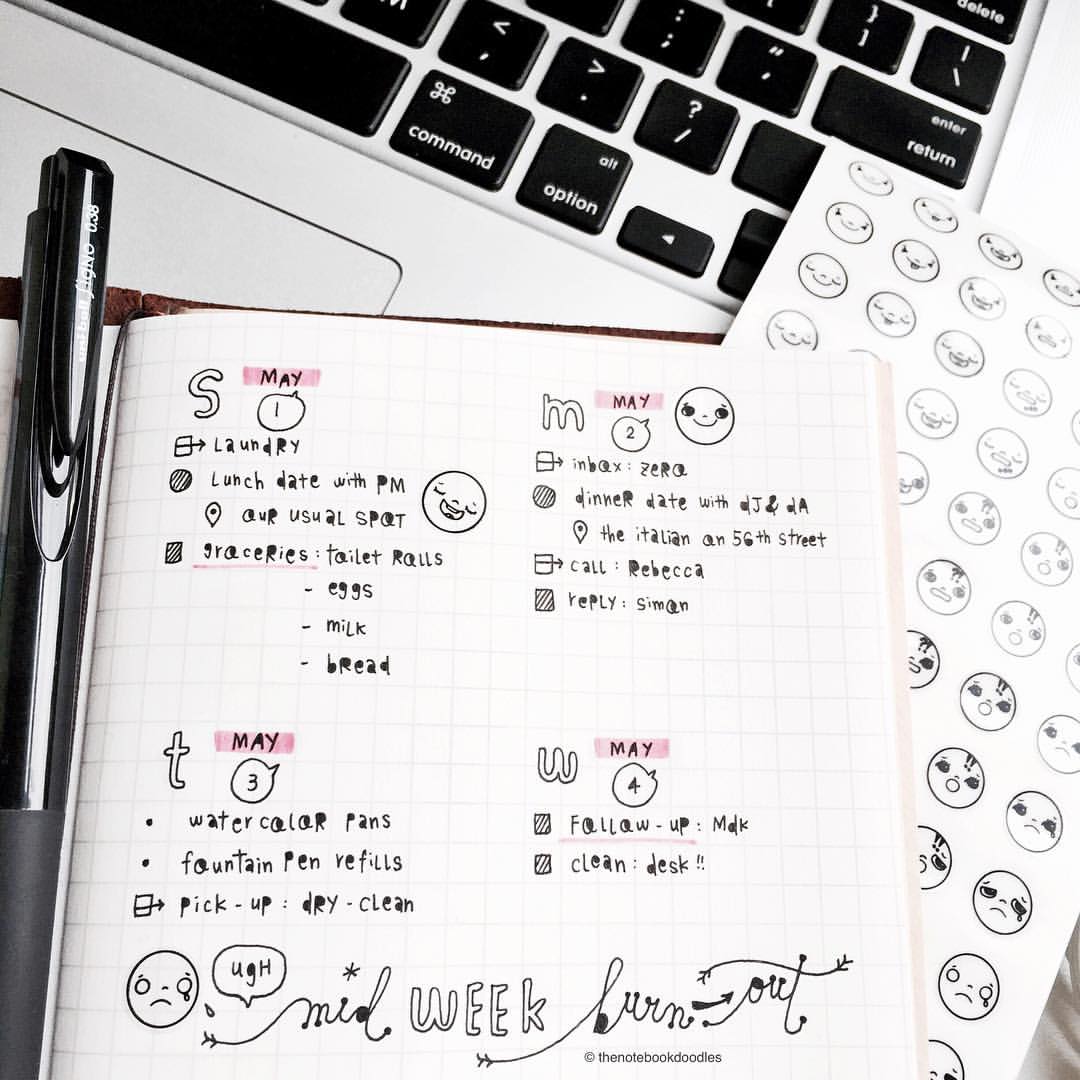 delete
M
<
,
:
;
"
'
}
]
|
\
>
.
?
/
enter
return
⌘
command
alt
option
◄
uni-ball SIGNO 0.38
S MAY
1
LaundRY
Lunch date with PM
OUR USUAL SPOT
groceRies: toilet Rolls
- eggs
- milk
- bRead
m MAY
2
inbox: zeRo
dinneR date with dJ & dA
the italian on 56th street
call: Rebecca
rePLY: simon
t MAY
3
water coloR pans
fountain Pen refills
pick-up: dRY-clean
w MAY
4
Follow-uP: Mdk
clean: desk!!
ugH
* mid WEEk burn-out
© thenotebookdoodles